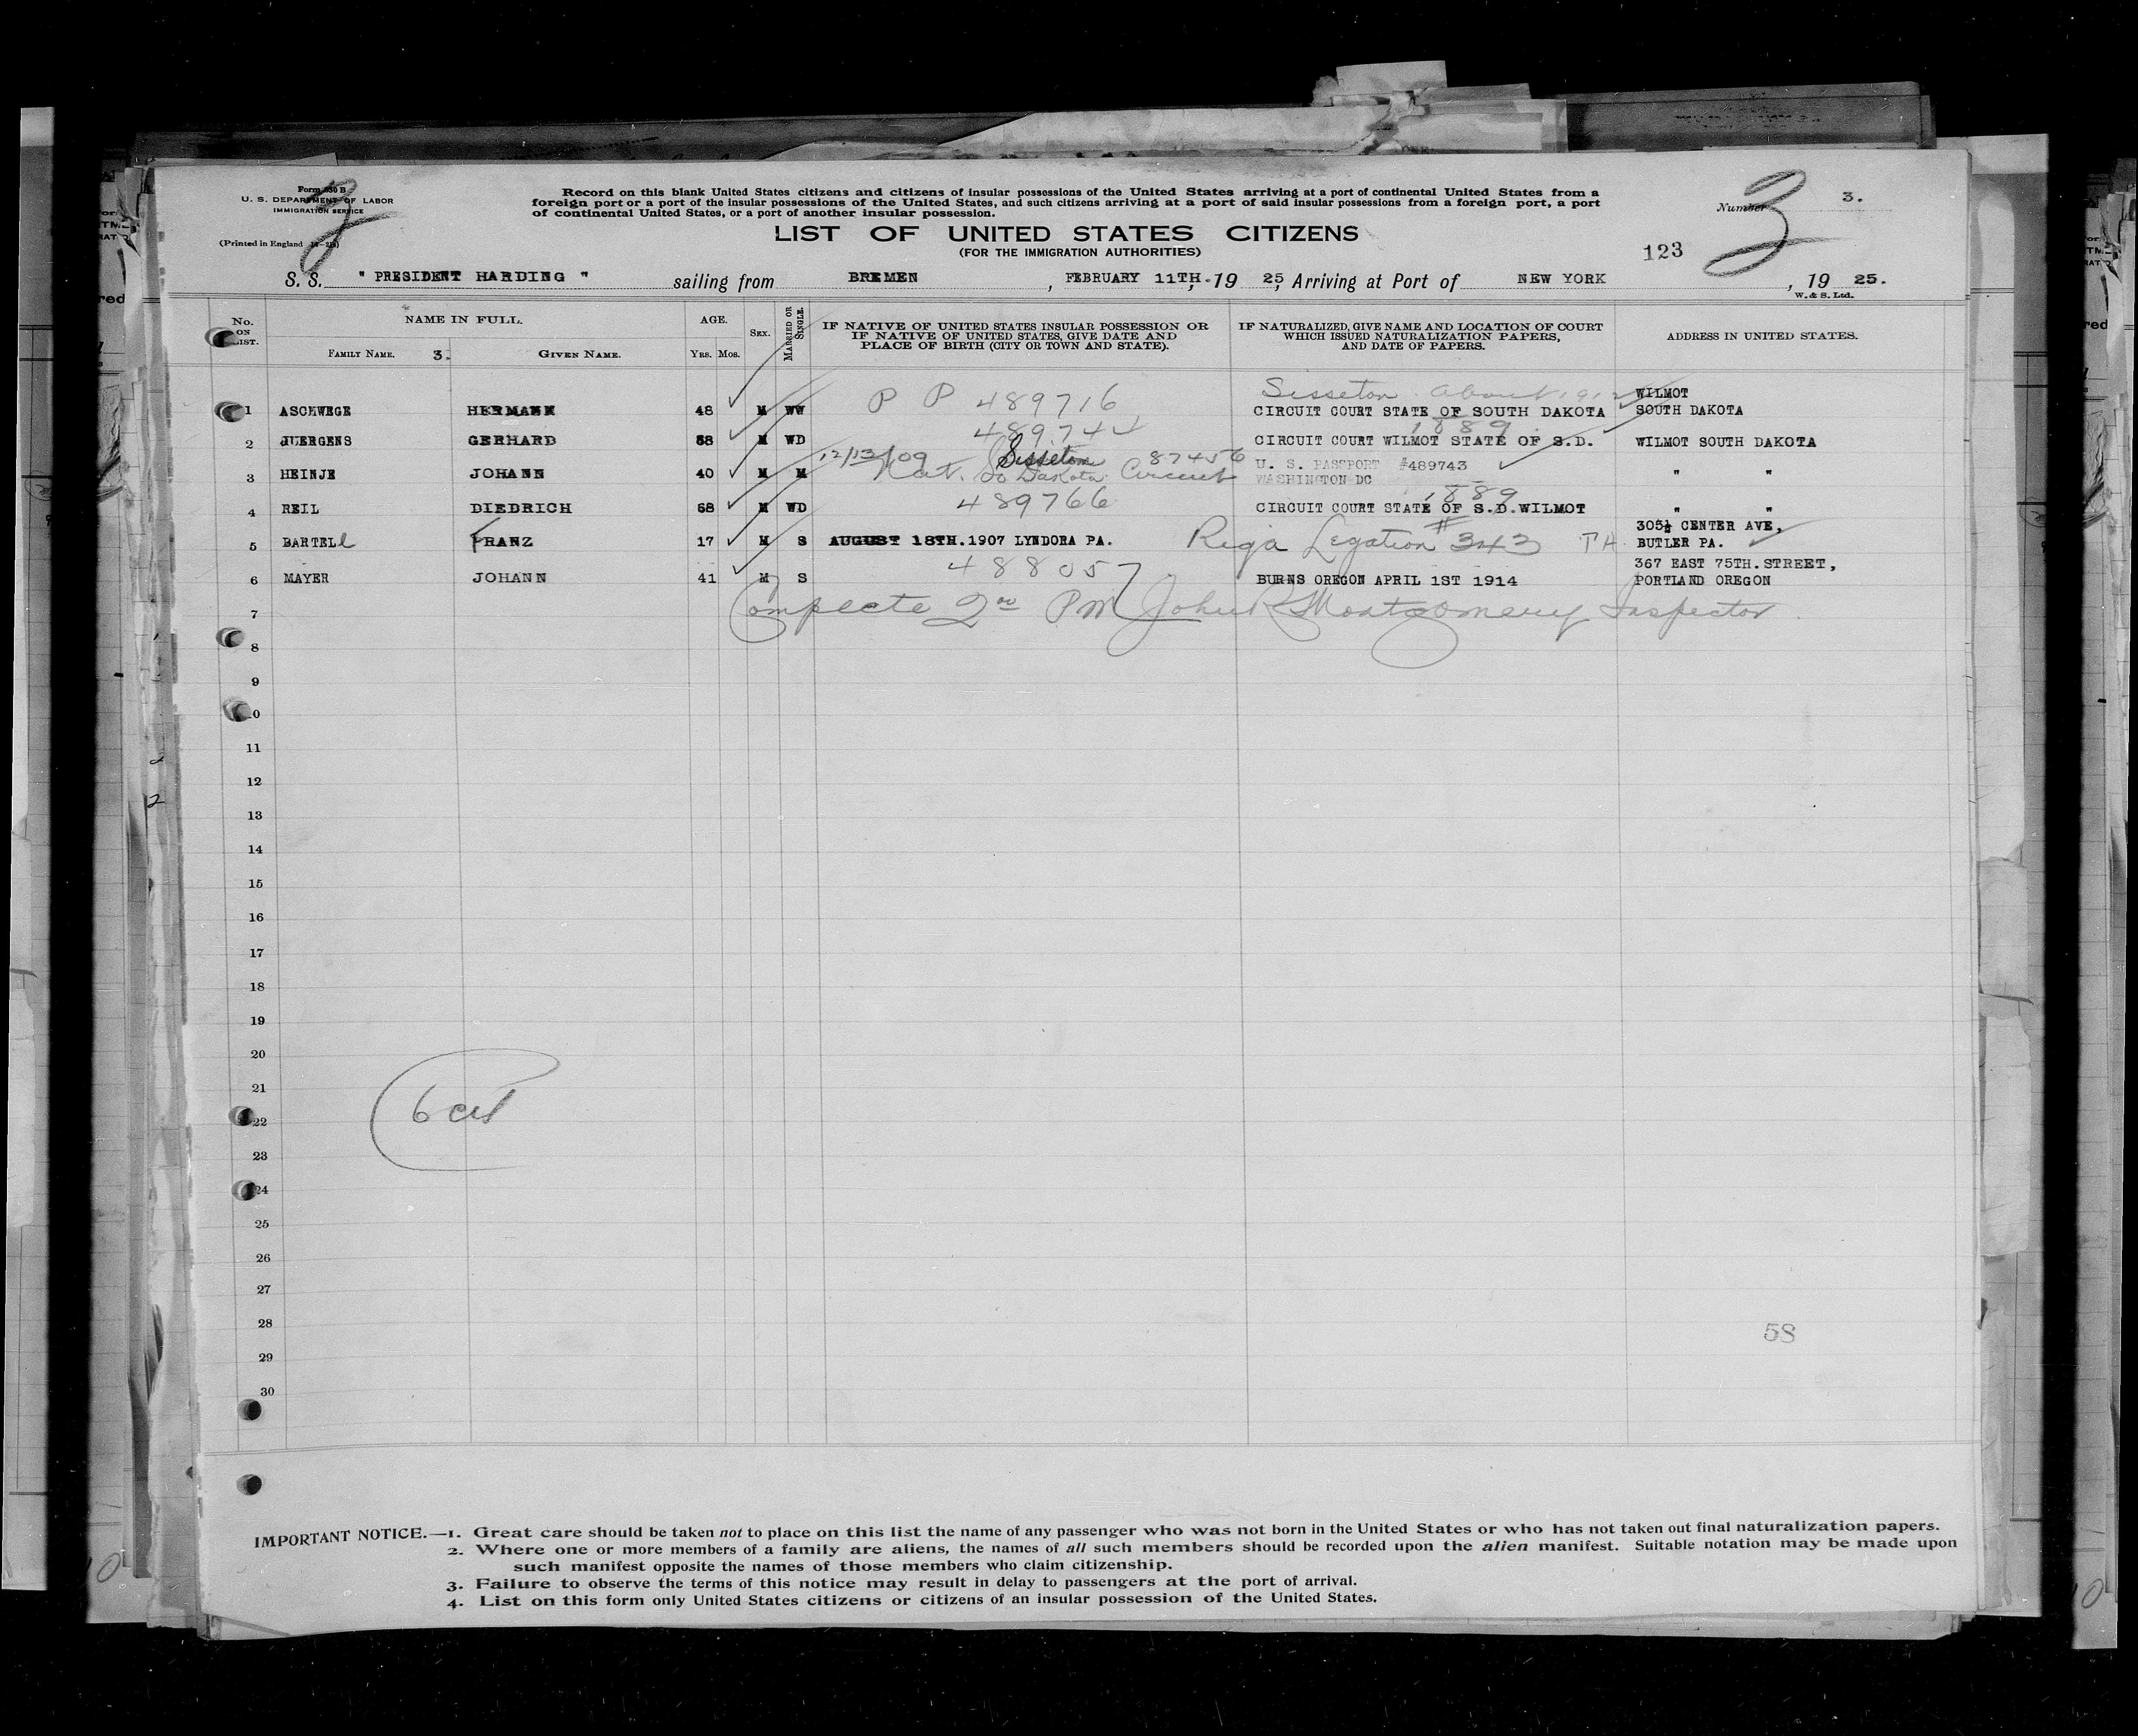 Form 630 B
U. S. DEPARTMENT OF LABOR
IMMIGRATION SERVICE
(Printed in England
Record on this blank United States citizens and citizens of insular possessions of the United States arriving at a port of continental United States from a
foreign port or a port of the insular possessions of the United States, and such citizens arriving at a port of said insular possessions from a foreign port, a port
of continental United States, or a port of another insular possession.
LIST OF UNITED STATES CITIZENS
(FOR THE IMMIGRATION AUTHORITIES)
Number 3.
3
123
S. S. " PRESIDENT HARDING " sailing from BREMEN , FEBRUARY 11TH, 19 25, Arriving at Port of NEW YORK , 19 25.
W. & S. Ltd.
No. ON LIST. NAME IN FULL. AGE. SEX. MARRIED OR SINGLE. IF NATIVE OF UNITED STATES INSULAR POSSESSION OR IF NATIVE OF UNITED STATES, GIVE DATE AND PLACE OF BIRTH (CITY OR TOWN AND STATE). IF NATURALIZED, GIVE NAME AND LOCATION OF COURT WHICH ISSUED NATURALIZATION PAPERS, AND DATE OF PAPERS. ADDRESS IN UNITED STATES.
FAMILY NAME. 3. GIVEN NAME. YRS. MOS.
P P 489716 Sisseton About 1912 WILMOT
1 ASCHWEGE HERMANN 48 M WW CIRCUIT COURT STATE OF SOUTH DAKOTA SOUTH DAKOTA
48974 1889
2 JUERGENS GERHARD 58 M WD CIRCUIT COURT WILMOT STATE OF S.D. WILMOT SOUTH DAKOTA
12/13/09 Sisseton 87456 U. S. PASSPORT #489743
3 HEINJE JOHANN 40 M M Nat. So Dakota Circuit WASHINGTON DC " "
489766 1889
4 REIL DIEDRICH 68 M WD CIRCUIT COURT STATE OF S.D. WILMOT " "
305½ CENTER AVE,
5 BARTELL FRANZ 17 M S AUGUST 18TH.1907 LYNDORA PA. Riga Legation #343 BUTLER PA.
488057 367 EAST 75TH.STREET,
6 MAYER JOHANN 41 M S BURNS OREGON APRIL 1ST 1914 PORTLAND OREGON
7 Complete 2 PM John R Montgomery Inspector
8
9
10
11
12
13
14
15
16
17
18
19
20
21
6
22
23
24
25
26
27
28
58
29
30
IMPORTANT NOTICE.—1. Great care should be taken not to place on this list the name of any passenger who was not born in the United States or who has not taken out final naturalization papers.
2. Where one or more members of a family are aliens, the names of all such members should be recorded upon the alien manifest. Suitable notation may be made upon
such manifest opposite the names of those members who claim citizenship.
3. Failure to observe the terms of this notice may result in delay to passengers at the port of arrival.
4. List on this form only United States citizens or citizens of an insular possession of the United States.